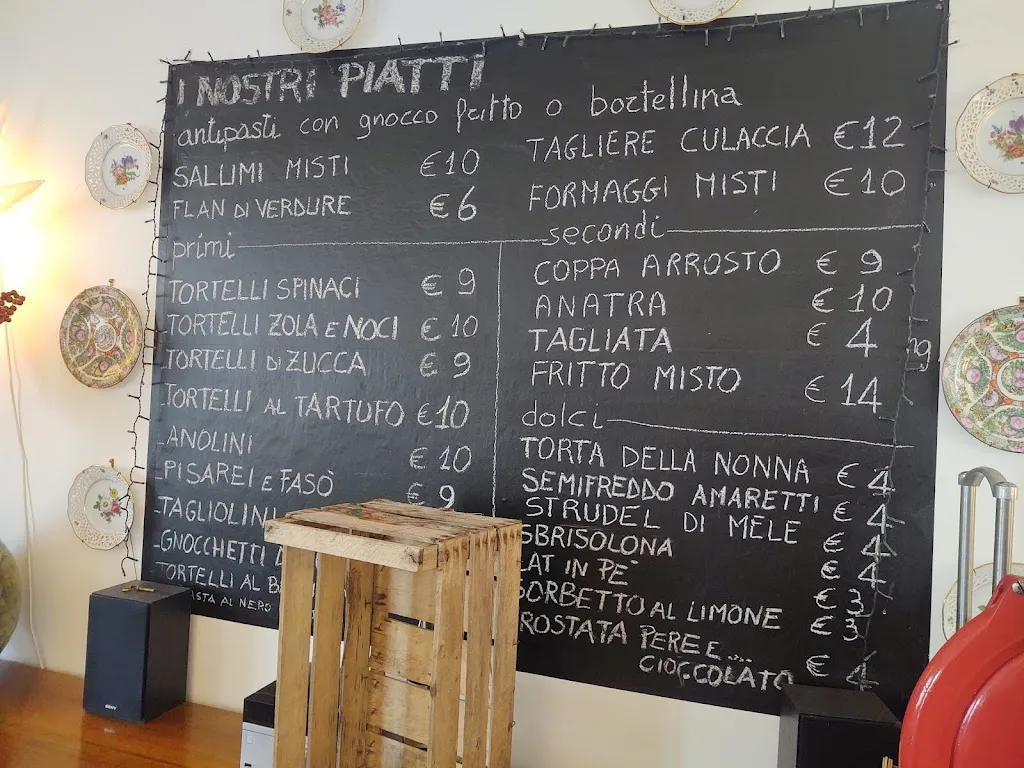 I NOSTRI PIATTI
antipasti con gnocco fritto o bortellina
SALUMI MISTI €10
FLAN DI VERDURE €6
TAGLIERE CULACCIA €12
FORMAGGI MISTI €10
primi
TORTELLI SPINACI €9
TORTELLI ZOLA e NOCI €10
TORTELLI DI ZUCCA €9
TORTELLI AL TARTUFO €10
-ANOLINI €10
-PISAREI e FASÒ €9
-TAGLIOLINI
-GNOCCHETTI
TORTELLI AL
AL NERO
secondi
COPPA ARROSTO €9
ANATRA €10
TAGLIATA € 4 hg
FRITTO MISTO €14
dolci
TORTA DELLA NONNA €4
SEMIFREDDO AMARETTI €4
STRUDEL DI MELE €4
SBRISOLONA €4
LAT IN PE' €3
SORBETTO AL LIMONE €3
CROSTATA PERE E....
CIOCCOLATO €4
SONY